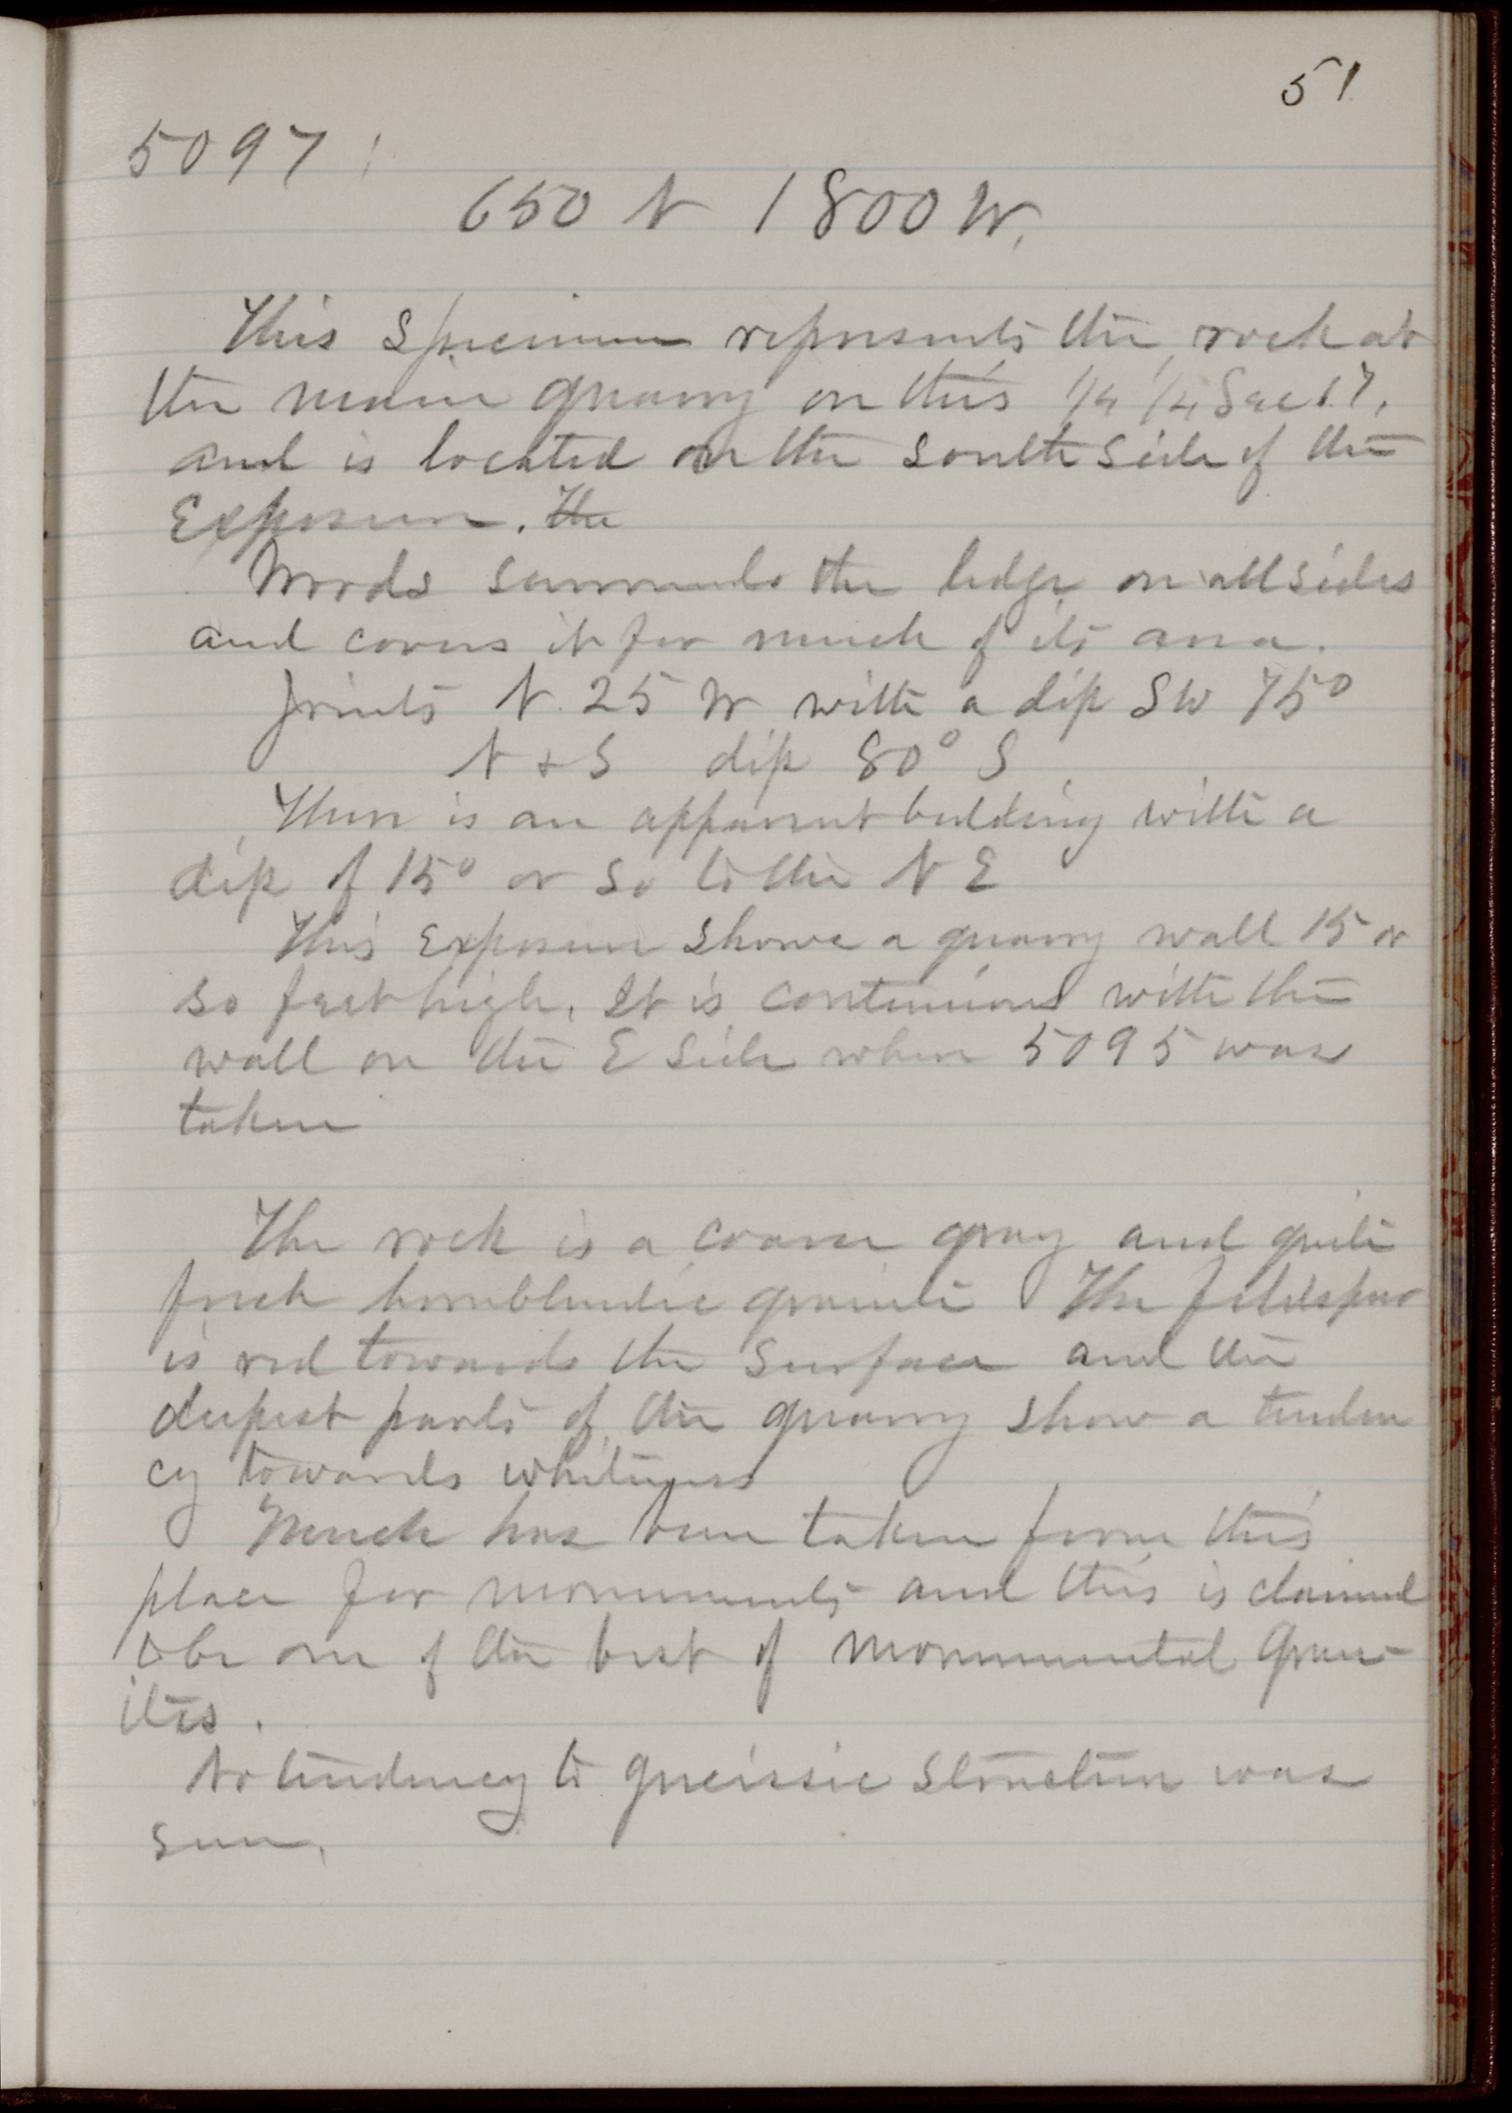 51
5097
650 N 1800 W.
This Specimen represents the rock at
the main quarry on this 1/4 1/4 Sec 17,
and is located on the South Side of the
Exposure. The
Woods surrounds the ledge on all sides
and covers it for much of its area.
Joints N. 25 W with a dip SW 75°
N + S dip 80° S
There is an apparent bedding with a
dip of 15° or so to the N E
This Exposure Shows a quarry wall 15 or
so feet high. It is continuous with the
wall on the E Side where 5095 was
taken
The rock is a coarse gray and quite
fresh hornblendic granite The feldspar
is red towards the Surface and the
deepest parts of the quarry show a tenden
cy towards whiteness
Much has been taken from this
place for monuments and this is claimed
to be one of the best of monumental Gran-
ites.
No tendency to gneissic Structure was
seen.